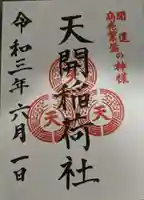 開運
商売繁盛の神様
天開稲荷社
天
天
天
令和三年六月一日